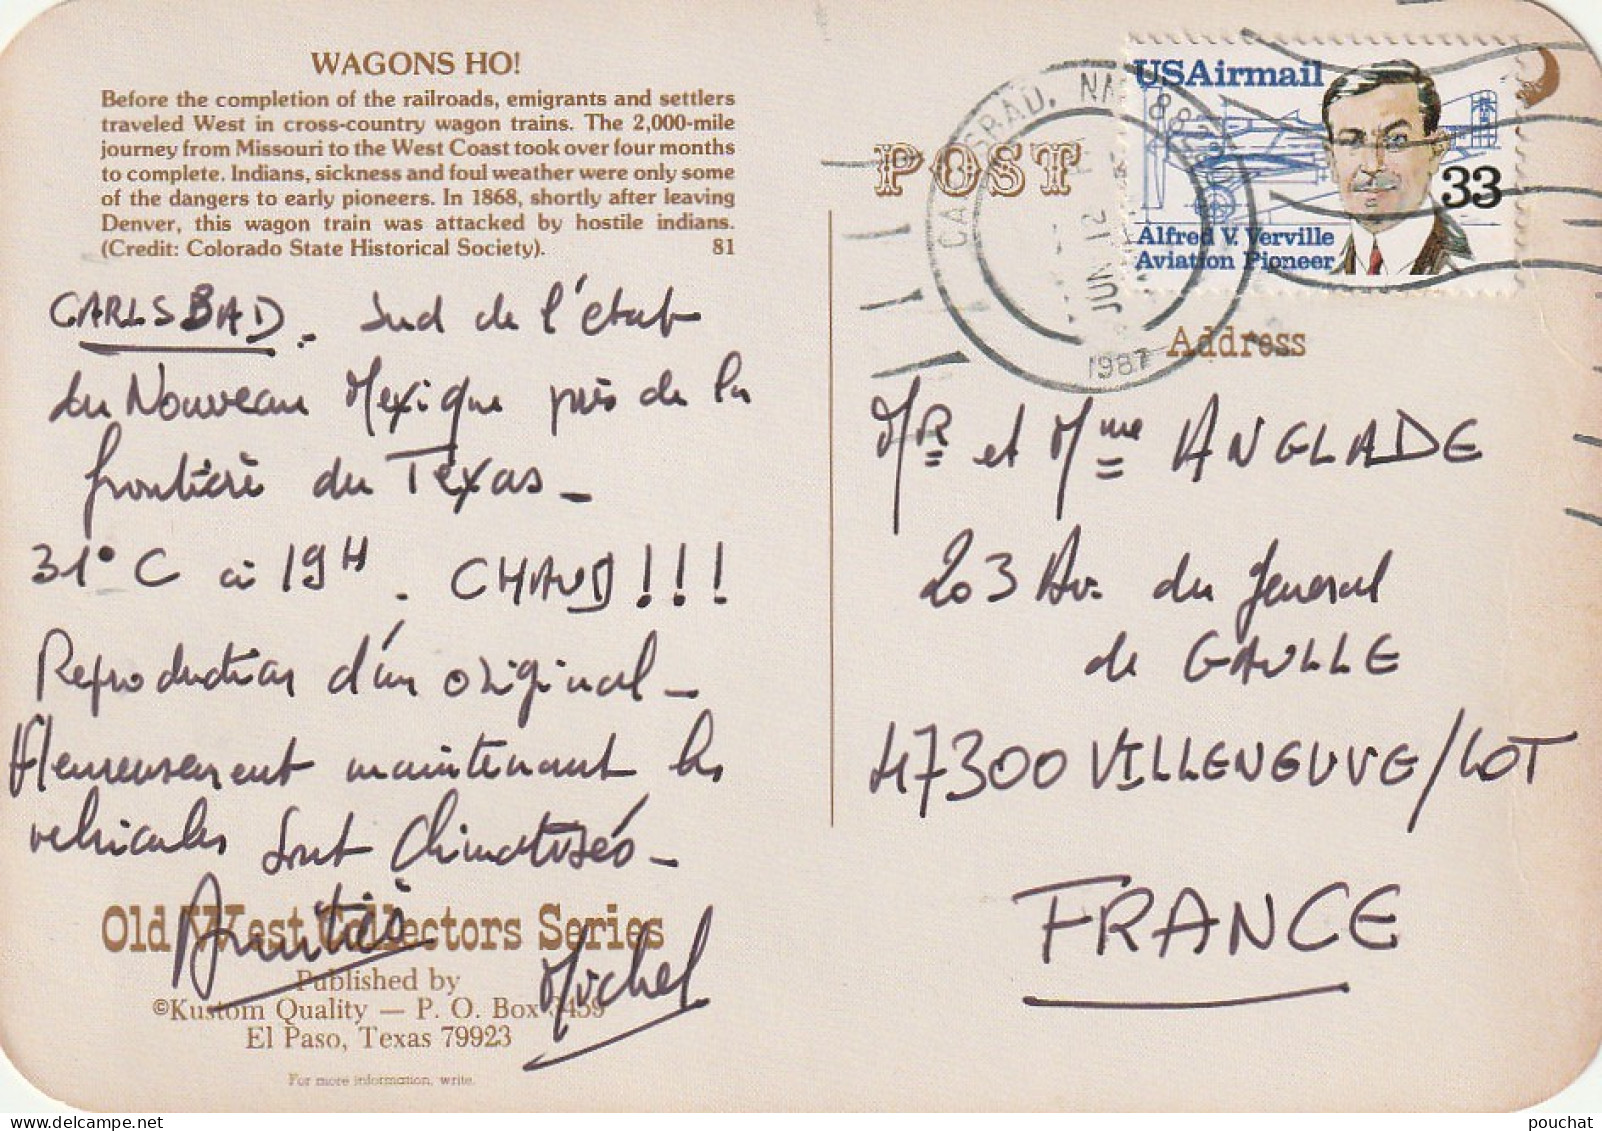 WAGONS HO!
Before the completion of the railroads, emigrants and settlers
traveled West in cross-country wagon trains. The 2,000-mile
journey from Missouri to the West Coast took over four months
to complete. Indians, sickness and foul weather were only some
of the dangers to early pioneers. In 1868, shortly after leaving
Denver, this wagon train was attacked by hostile indians.
(Credit: Colorado State Historical Society). 81
CARLSBAD. Sud de l'état
du Nouveau Mexique près de la
frontière du Texas -
31° C à 19H. CHAUD!!!
Reproduction d'un original -
Heureusement maintenant les
vehicules sont climatisés -
Amitiés
Michel
Old West Collectors Series
Published by
©Kustom Quality — P. O. Box 3459
El Paso, Texas 79923
For more information, write.
POST
CARLSBAD, NM 88220
JUN 12
1987
USAirmail
33
Alfred V. Verville
Aviation Pioneer
Address
MR et Mme ANGLADE
203 Av. du General
de GAULLE
47300 VILLENEUVE/LOT
FRANCE
pouchat